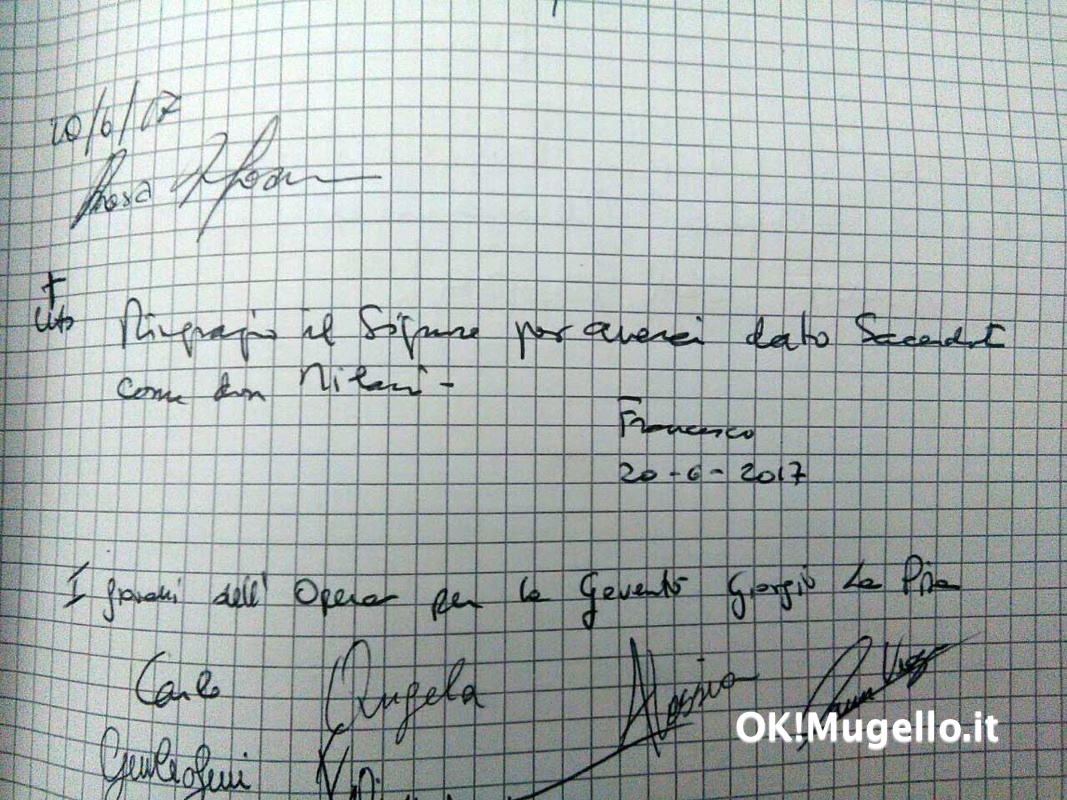 20/6/17
Rosa
Ringrazio il Signore per averci dato Sacerdoti
come don Milani -
Francesco
20-6-2017
I giovani dell' Opera per la Gioventù Giorgio La Pira
Carlo Angela Alessia
OK!Mugello.it